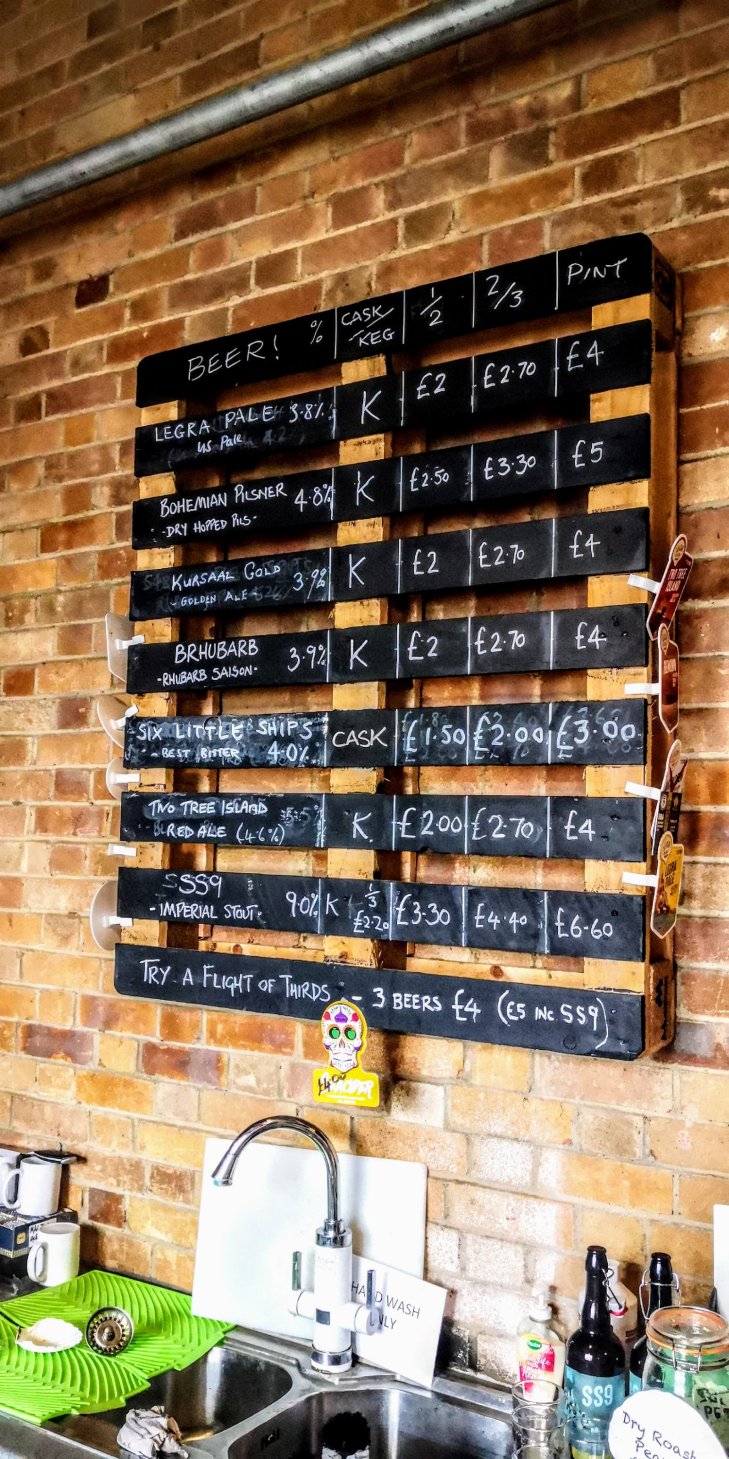 BEER! % CASK/KEG 1/2 2/3 PINT
LEGRA PALE 3.8% K £2 £2.70 £4
US Pale
BOHEMIAN PILSNER 4.8% K £2.50 £3.30 £5
-DRY HOPPED PILS-
KURSAAL GOLD 3.9% K £2 £2.70 £4
- GOLDEN ALE -
BRHUBARB 3.9% K £2 £2.70 £4
-RHUBARB SAISON-
SIX LITTLE SHIPS CASK £1.50 £2.00 £3.00
- BEST BITTER 4.0%
TWO TREE ISLAND K. £2.00 £2.70 £4
RED ALE (4.6%)
SS9 9.0% K 1/3 £2.20 £3.30 £4.40 £6.60
- IMPERIAL STOUT -
TRY A FLIGHT OF THIRDS - 3 BEERS £4 (£5 INC. SS9)
£4.00
TWO TREE
ISLAND
HAND WASH
ONLY
SS9
Dry Roast